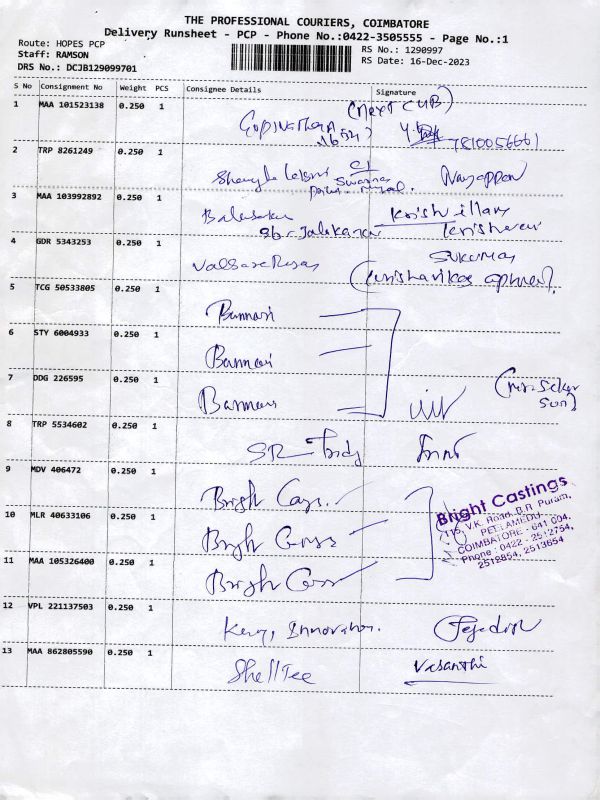 THE PROFESSIONAL COURIERS, COIMBATORE
Delivery Runsheet - PCP - Phone No.:0422-3505555 - Page No.:1
Route: HOPES PCP
Staff: RAMSON
DRS No.: DCJB129099701
RS No.: 1290997
RS Date: 16-Dec-2023
S No Consignment No Weight PCS Consignee Details Signature
1 MAA 101523138 0.250 1 (Next CUB)
7810056661
2 TRP 8261249 0.250 1
3 MAA 103992892 0.250 1
4 GDR 5343253 0.250 1
Sukumar
5 TCG 50533805 0.250 1 Bannari
6 STY 6004933 0.250 1 Bannari
7 DDG 226595 0.250 1 Bannari
8 TRP 5534602 0.250 1 SR
9 MDV 406472 0.250 1 Bright
10 MLR 40633106 0.250 1 Bright
11 MAA 105326400 0.250 1 Bright
Bright Castings
115, V.K. Road, B.R. Puram,
PEELAMEDU,
COIMBATORE - 641 004.
Phone : 0422 - 2512754,
2512854, 2513654
12 VPL 221137503 0.250 1 Innovation.
13 MAA 862805590 0.250 1 ShellTee Vasanthi